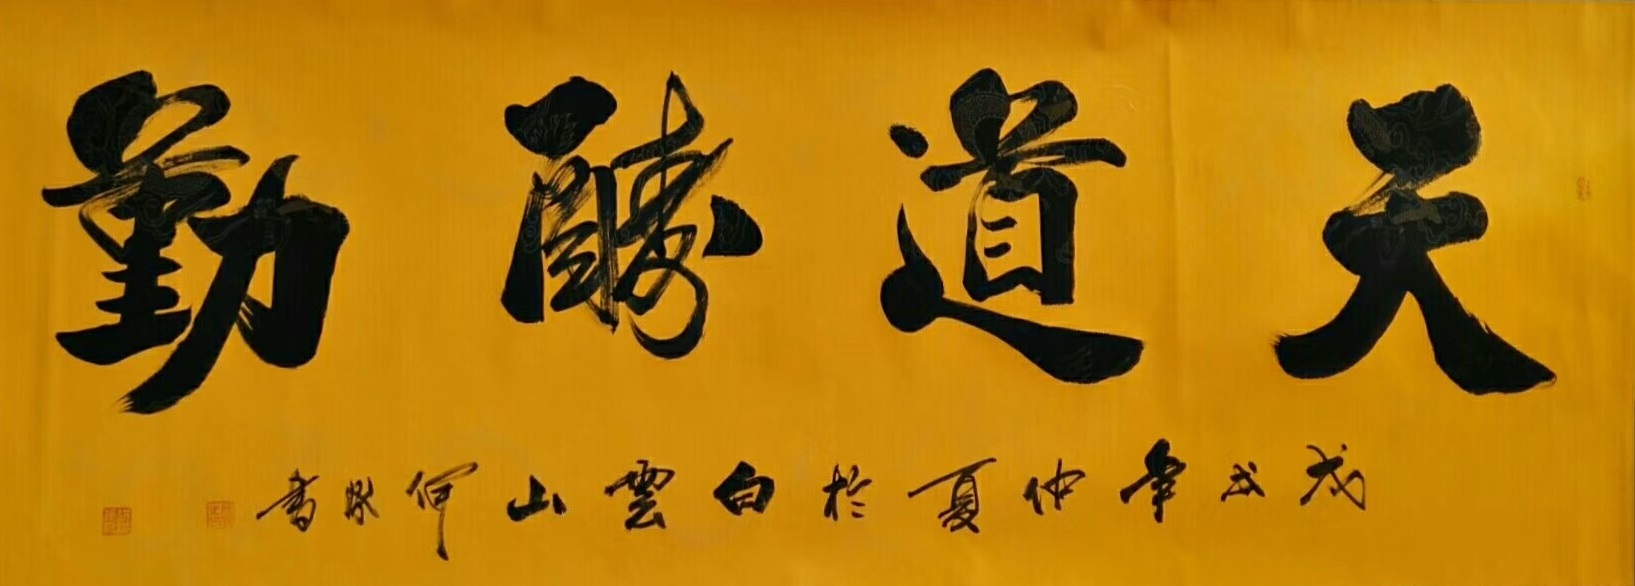 天道酬勤
戊戌年仲夏於白雲山何書